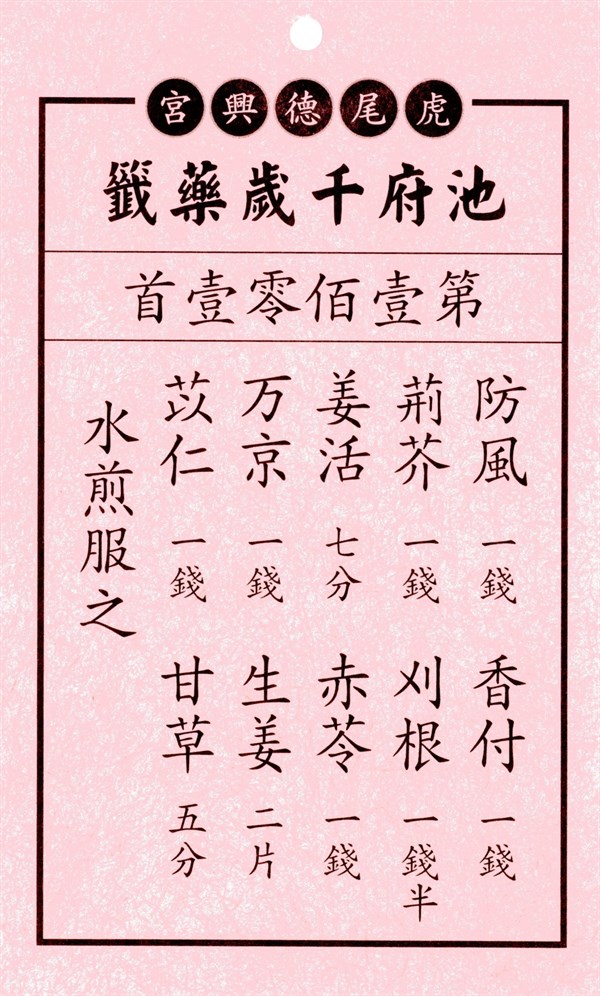 虎尾德興宮
池府千歲藥籤
第壹佰零壹首
防風 一錢 香付 一錢
荊芥 一錢 刈根 一錢半
姜活 七分 赤苓 一錢
万京 一錢 生姜 二片
苡仁 一錢 甘草 五分
水煎服之